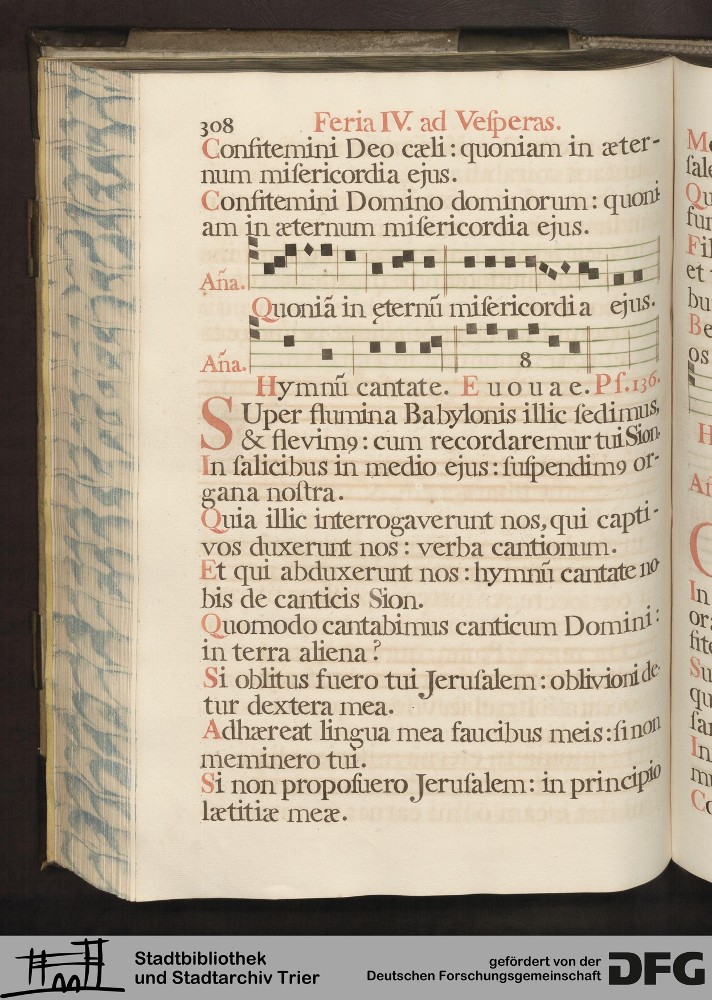 308 Feria IV. ad Veſperas.
Confitemini Deo cæli: quoniam in æter-
num miſericordia ejus.
Confitemini Domino dominorum: quoni-
am in æternum miſericordia ejus.
Aña.
Quoniã in ęternũ miſericordia ejus.
8
Aña.
Hymnũ cantate. E u o u a e. Pſ. 136.
SUper flumina Babylonis illic ſedimus,
& flevim9: cum recordaremur tui Sion.
In ſalicibus in medio ejus: ſuſpendim9 or-
gana noſtra.
Quia illic interrogaverunt nos, qui capti-
vos duxerunt nos: verba cantionum.
Et qui abduxerunt nos: hymnũ cantate no
bis de canticis Sion.
Quomodo cantabimus canticum Domini:
in terra aliena?
Si oblitus fuero tui Jeruſalem: oblivioni de-
tur dextera mea.
Adhæreat lingua mea faucibus meis: ſi non
meminero tui.
Si non propoſuero Jeruſalem: in principio
lætitiæ meæ.
In
et
Be
os
H
In
In
Stadtbibliothek
und Stadtarchiv Trier
gefördert von der
Deutschen Forschungsgemeinschaft
DFG